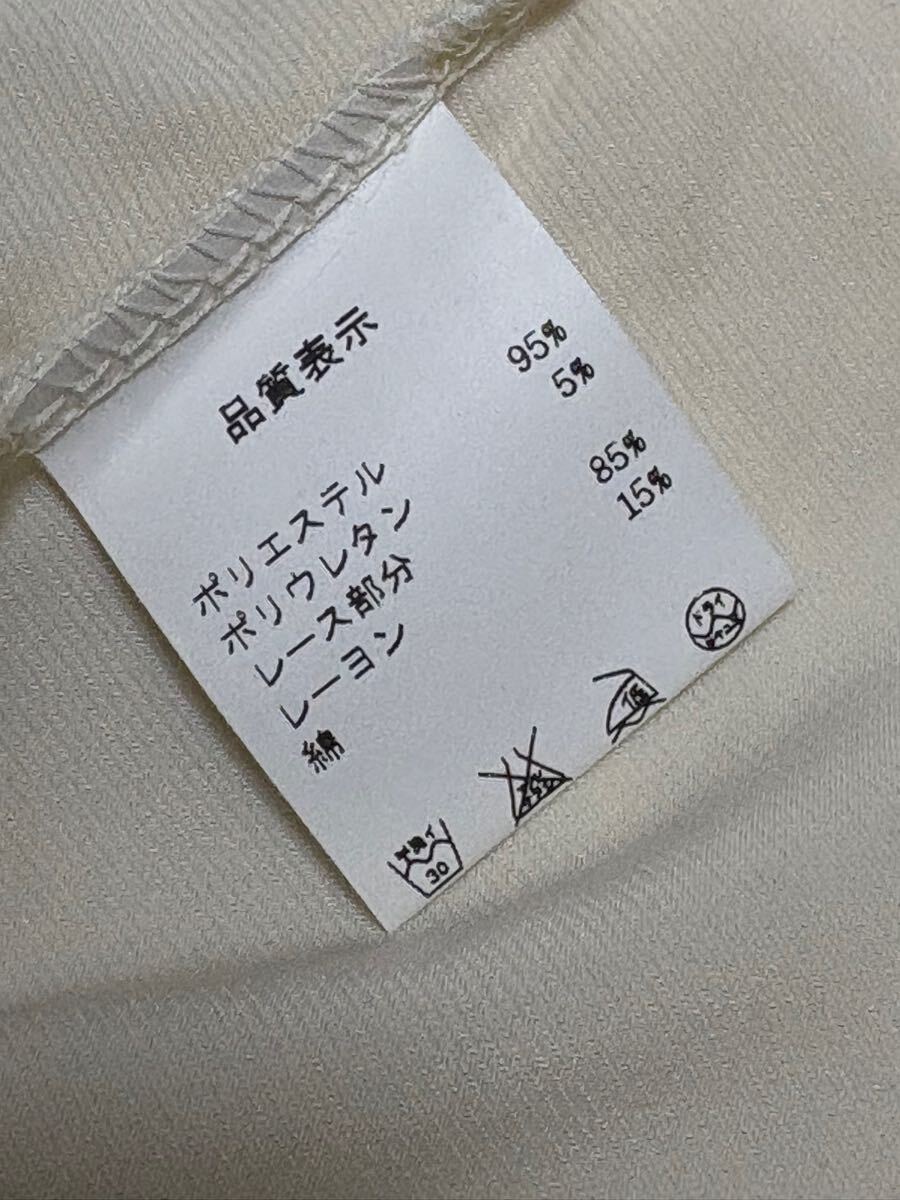 品質表示
ポリエステル 95%
ポリウレタン 5%
レース部分
レーヨン 85%
綿 15%
手洗イ
30
エンソサラシ
低
ドライ
セキユ系